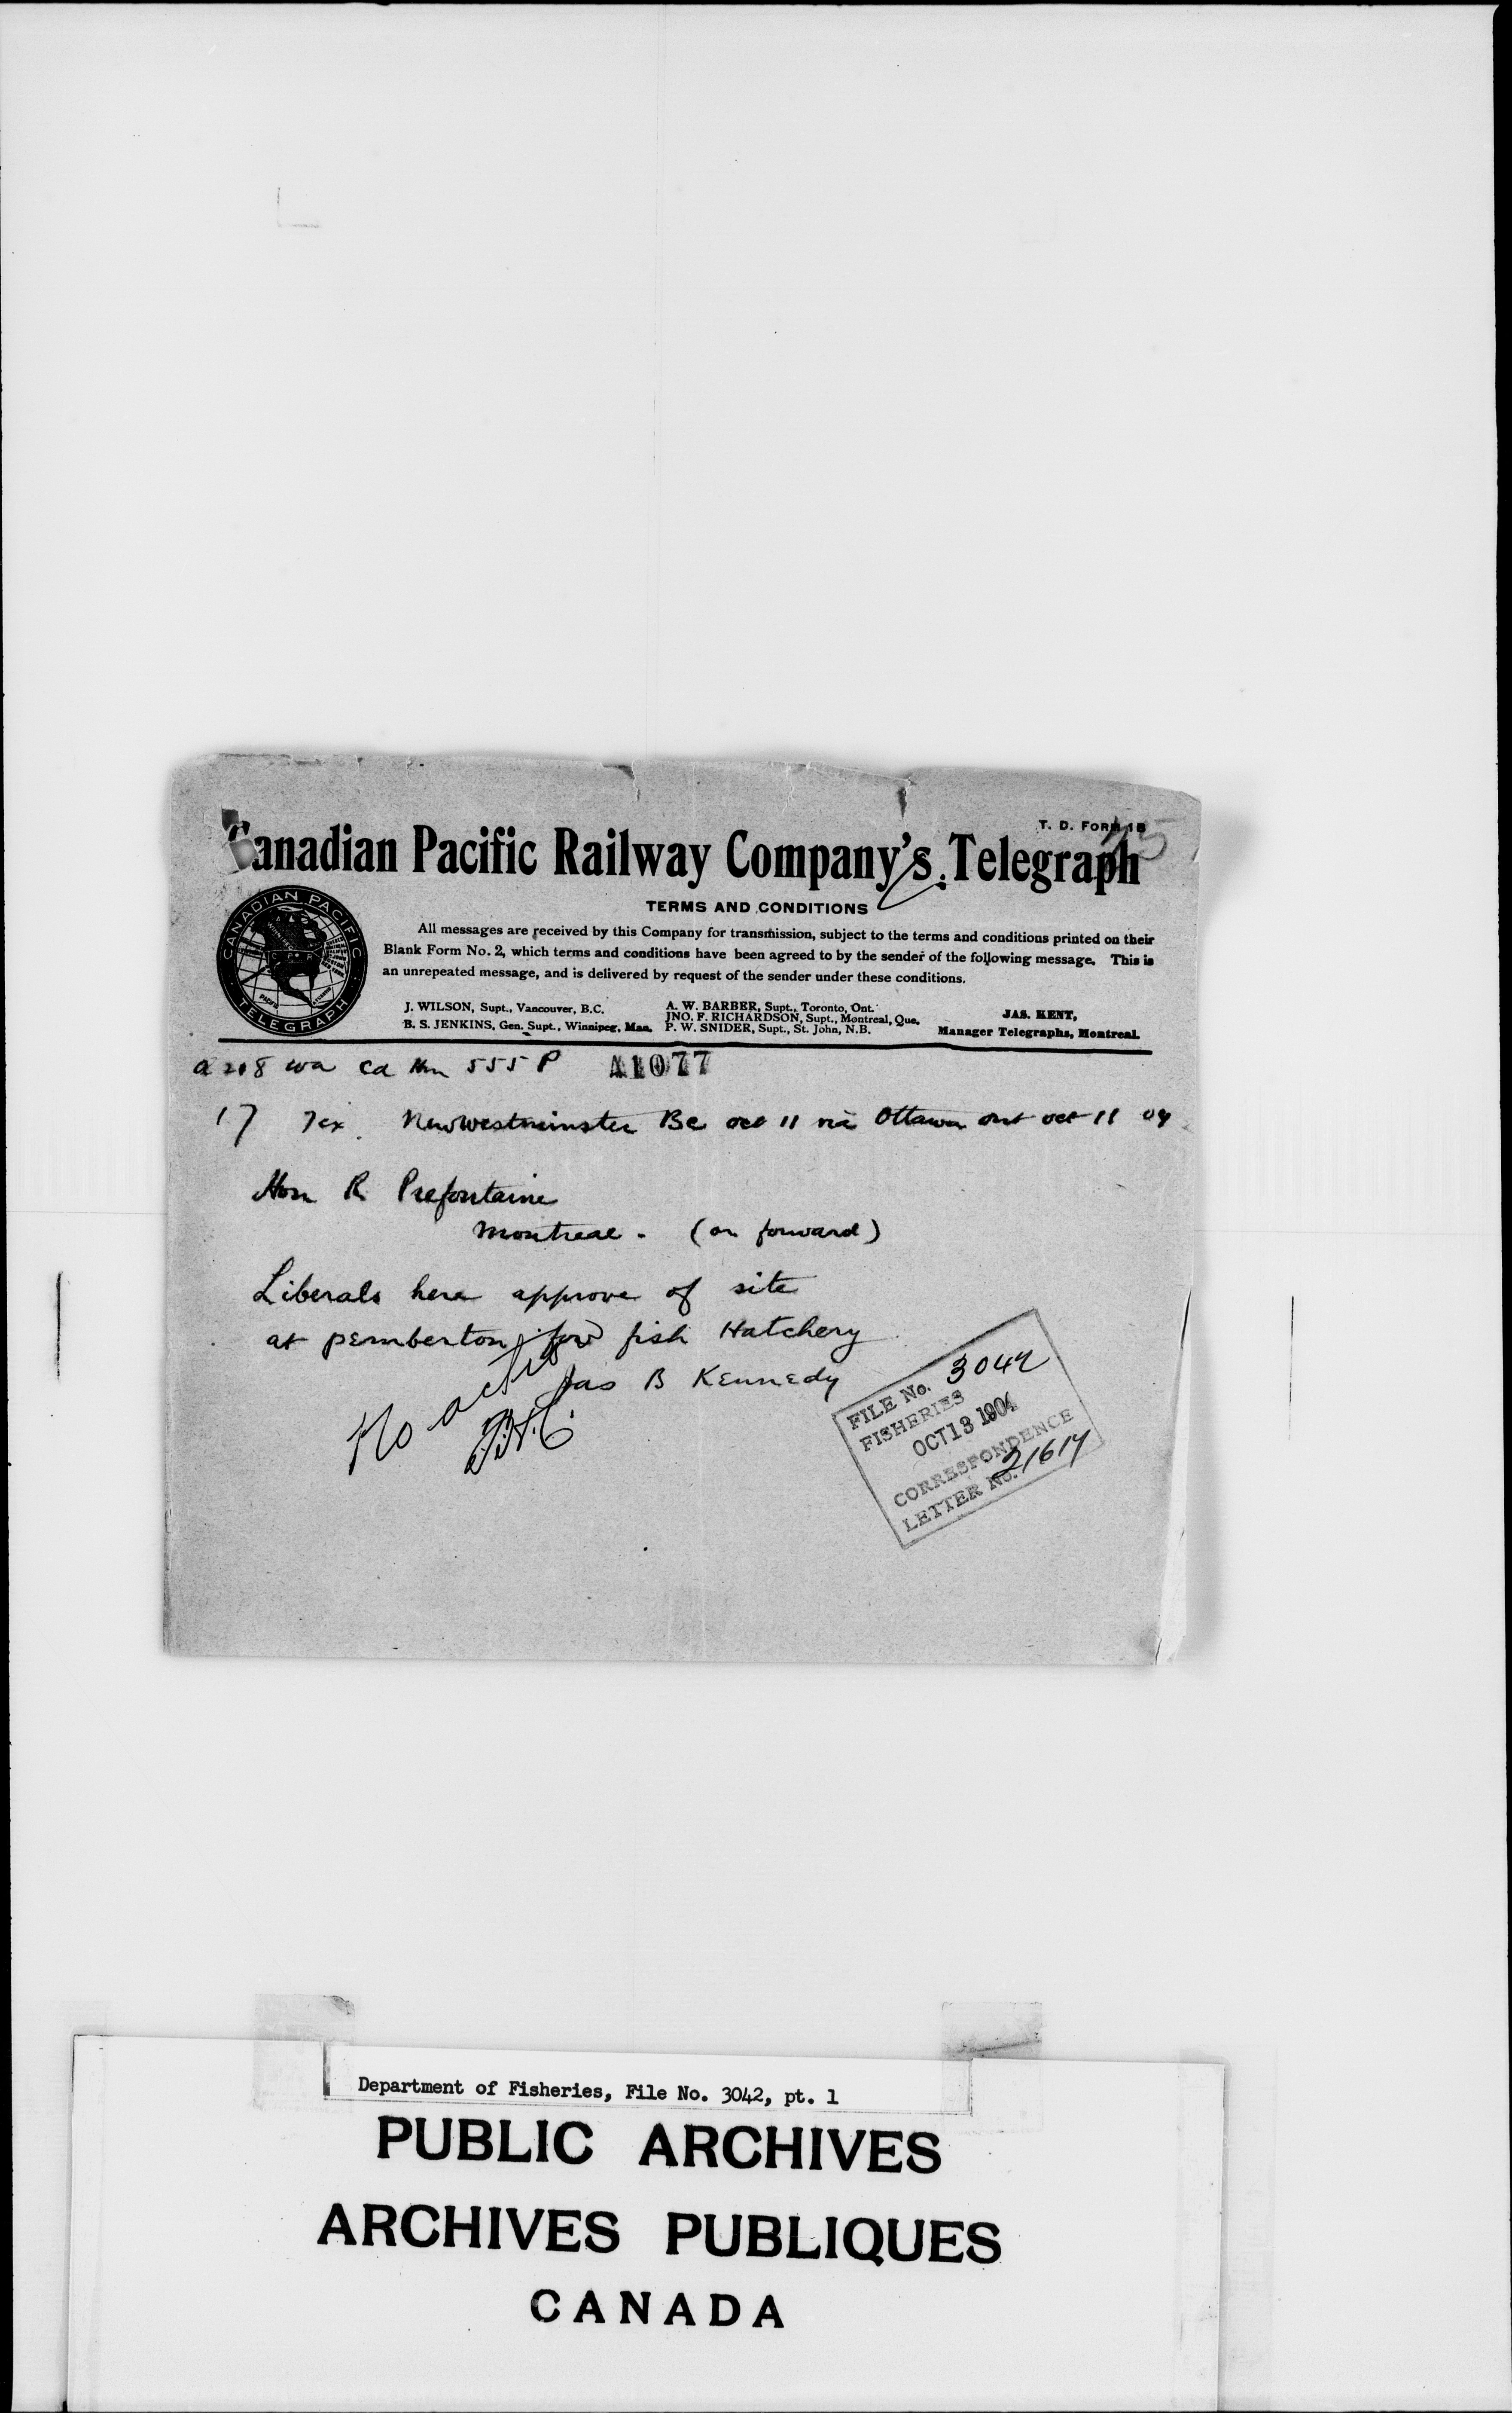 T. D. FORM 1B
45
Canadian Pacific Railway Company's Telegraph
TERMS AND CONDITIONS
All messages are received by this Company for transmission, subject to the terms and conditions printed on their
Blank Form No. 2, which terms and conditions have been agreed to by the sender of the following message. This is
an unrepeated message, and is delivered by request of the sender under these conditions.
CANADIAN PACIFIC
C P R
TELEGRAPH
J. WILSON, Supt., Vancouver, B.C.
B. S. JENKINS, Gen. Supt., Winnipeg, Man.
A. W. BARBER, Supt., Toronto, Ont.
JNO. F. RICHARDSON, Supt., Montreal, Que.
P. W. SNIDER, Supt., St. John, N.B.
JAS. KENT,
Manager Telegraphs, Montreal.
a 208 wa ca 555 P A1077
17 Newwestminster Bc oct 11 via Ottawa ont oct 11 04
Hon R Prefontaine
Montreal. (or forward)
Liberals here approve of site
at pemberton for fish Hatchery
Jas B Kennedy
No action
FILE No. 3042
FISHERIES
OCT 13 1904
CORRESPONDENCE
LETTER No. 21617
Department of Fisheries, File No. 3042, pt. 1
PUBLIC ARCHIVES
ARCHIVES PUBLIQUES
CANADA